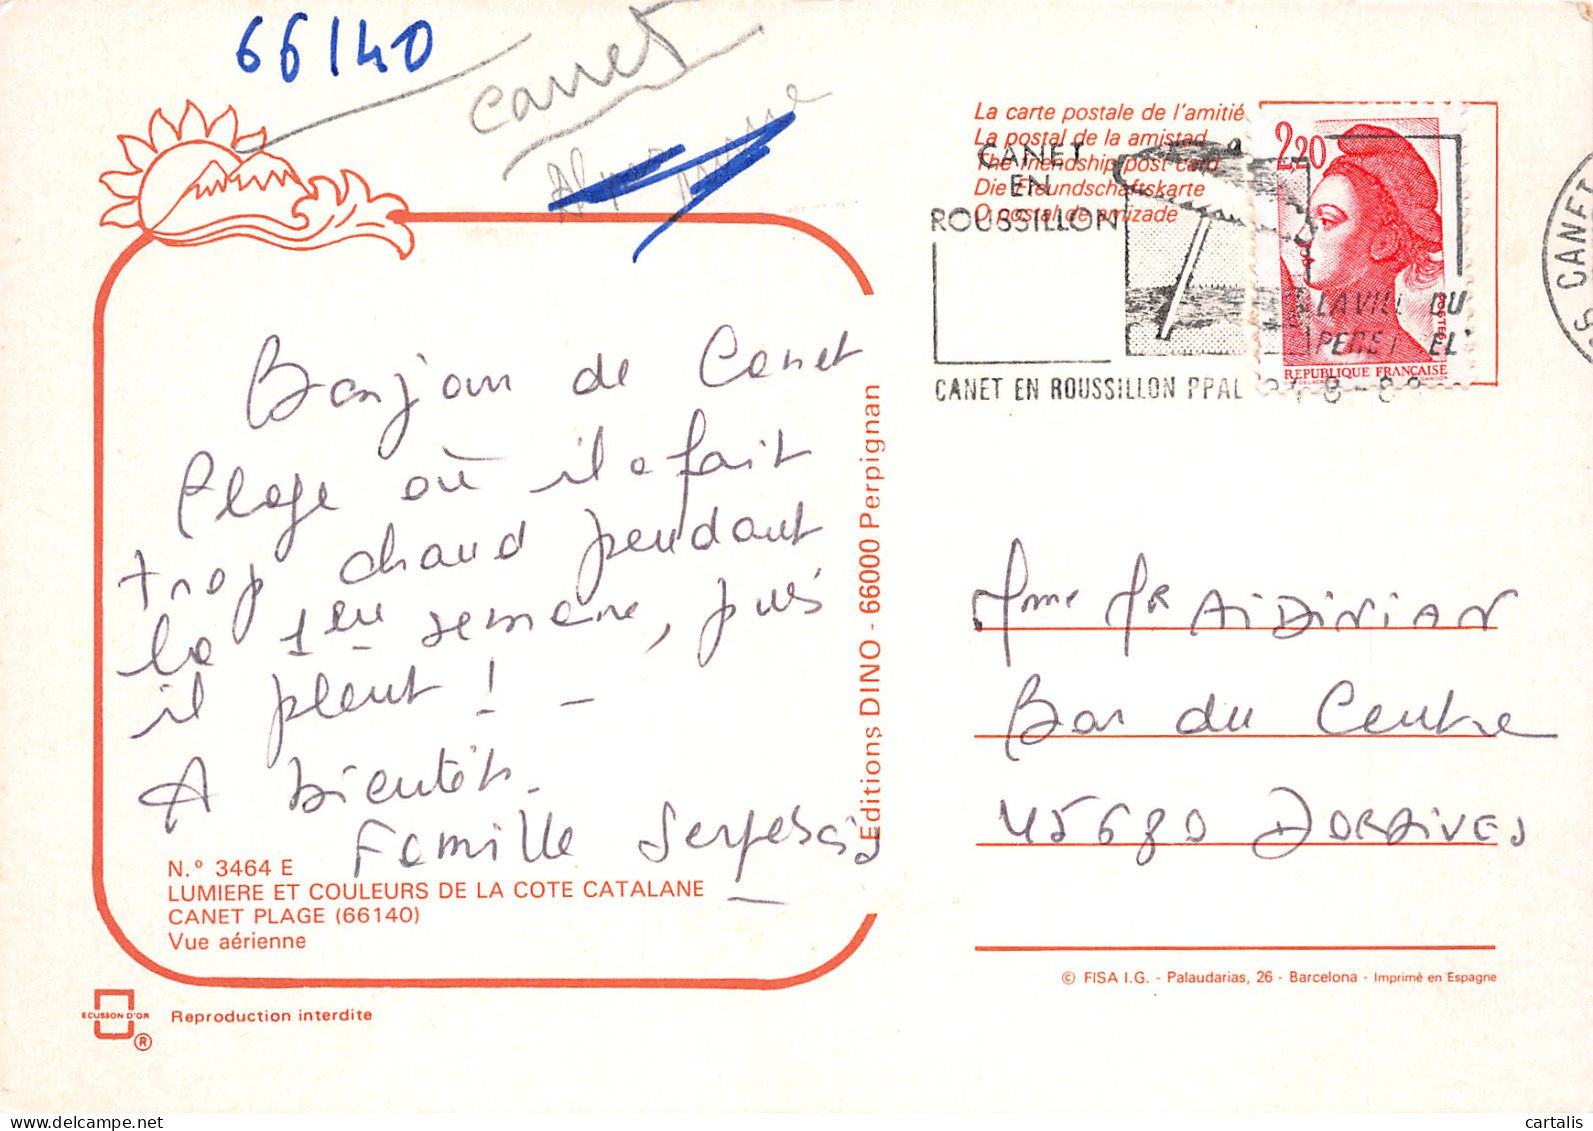 66140
Canet
La carte postale de l'amitié
La postal de la amistad
The friendship post card
Die Freundschaftskarte
O postal de amizade
CANET
EN
ROUSSILLON
2,20
POSTES
REPUBLIQUE FRANÇAISE
LA VILLE DU
CANET EN ROUSSILLON PPAL
66 CANET
Bonjour de Canet
Plage où il a fait
trop chaud pendant
la 1ère semaine, puis
il pleut ! -
A bientôt.
Famille
Editions DINO - 66000 Perpignan
Mme Mr AIDINIAN
Bar du Centre
45680 DORDIVES
N.º 3464 E
LUMIERE ET COULEURS DE LA COTE CATALANE
CANET PLAGE (66140)
Vue aérienne
© FISA I.G. - Palaudarias, 26 - Barcelona - Imprimé en Espagne
ECUSSON D'OR
®
Reproduction interdite
cartalis